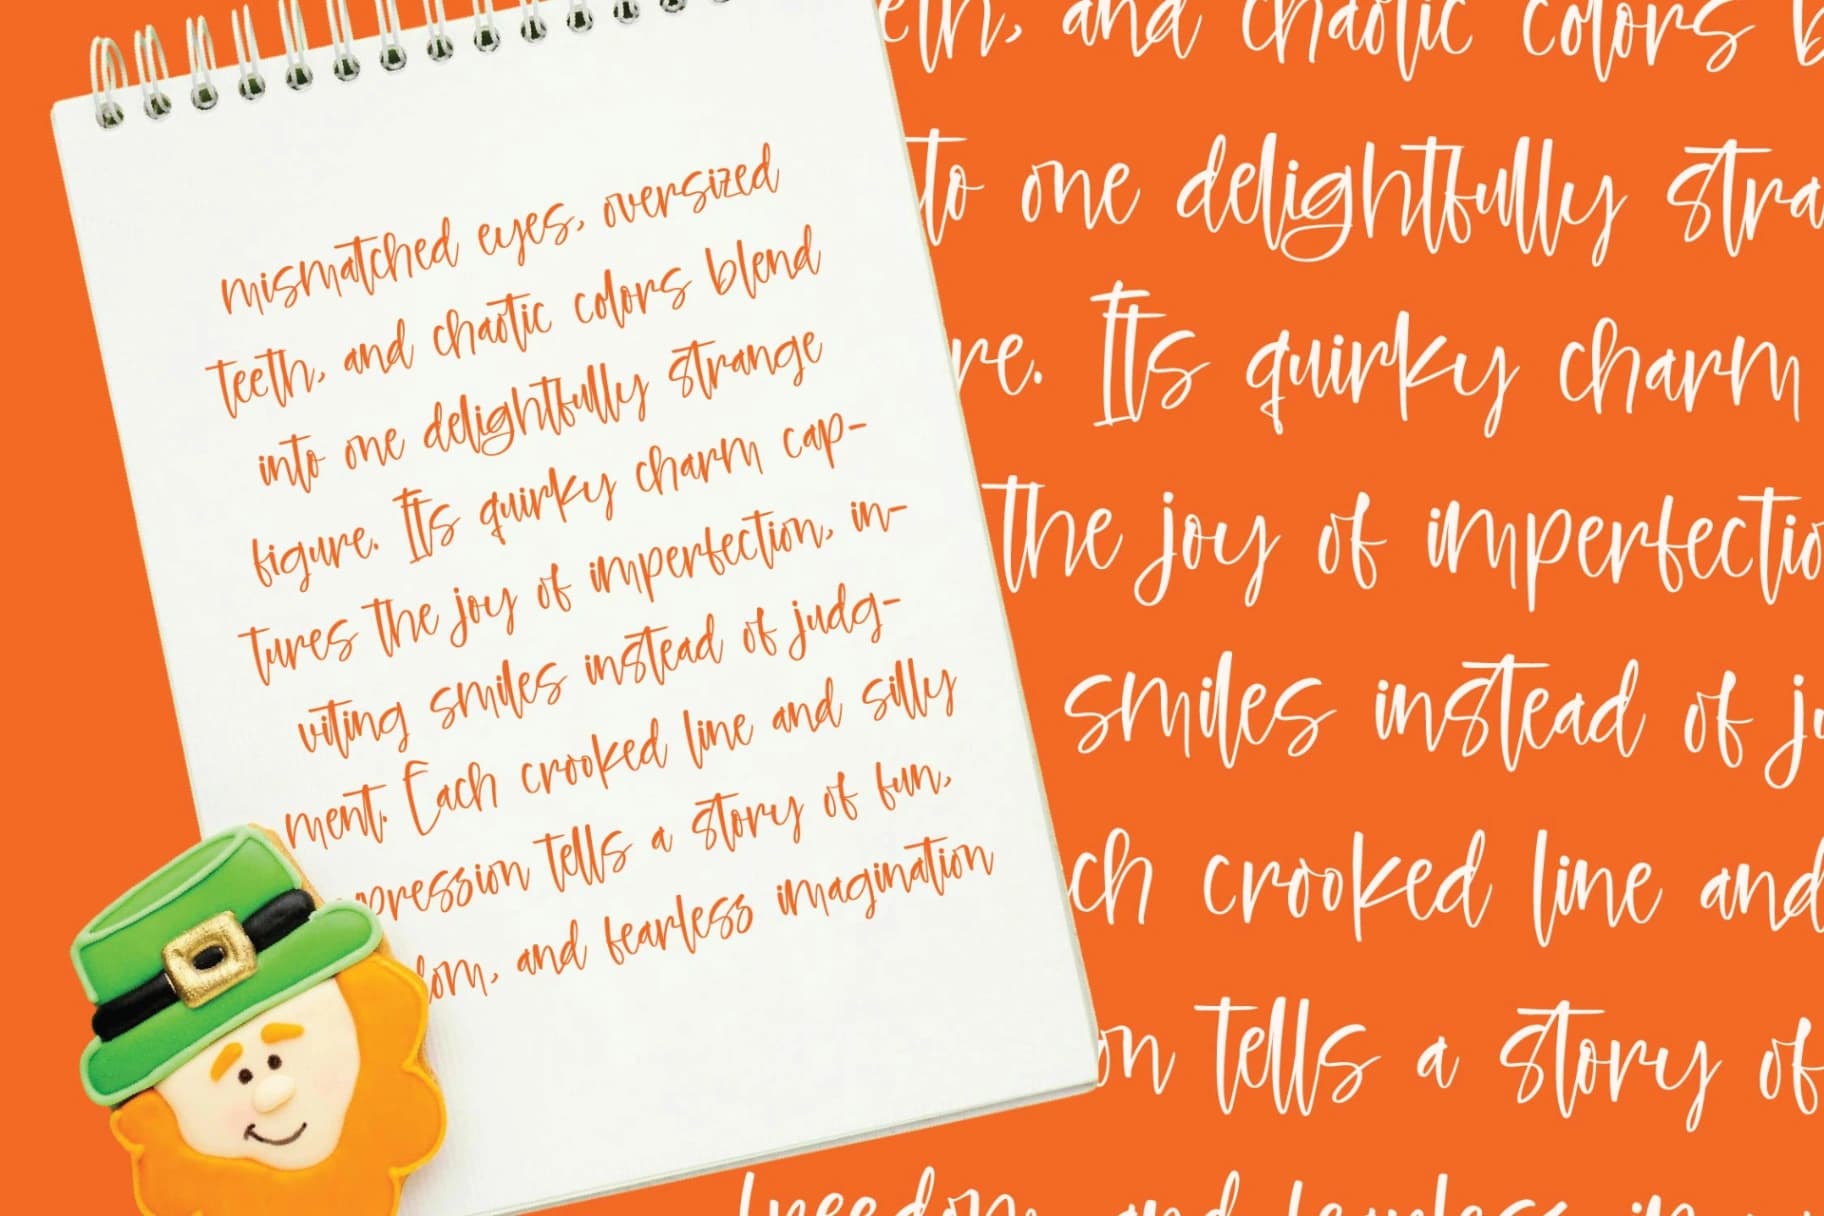 mismatched eyes, oversized
teeth, and chaotic colors blend
into one delightfully strange
figure. It's quirky charm cap-
tures the joy of imperfection, in-
viting smiles instead of judg-
ment. Each crooked line and silly
pression tells a story of fun,
dom, and fearless imagination
eth, and chaotic colors b
to one delightfully stra
re. It's quirky charm
the joy of imperfectio
smiles instead of ju
ch crooked line and
on tells a story of
freedom, and fearless im